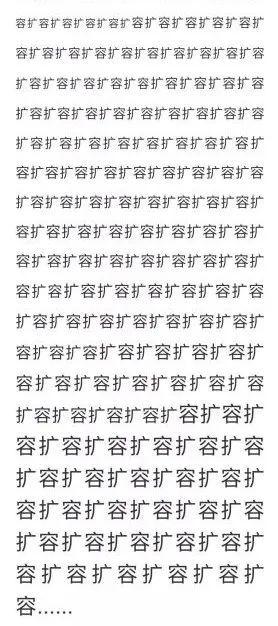 容扩容扩容扩容扩容扩容扩容扩容扩容扩容扩
容扩容扩容扩容扩容扩容扩容扩容扩容扩
容扩容扩容扩容扩容扩容扩容扩容扩容扩
容扩容扩容扩容扩容扩容扩容扩容扩容
扩容扩容扩容扩容扩容扩容扩容扩容扩
容扩容扩容扩容扩容扩容扩容扩容扩容
扩容扩容扩容扩容扩容扩容扩容扩容扩
容扩容扩容扩容扩容扩容扩容扩容扩
容扩容扩容扩容扩容扩容扩容扩容扩
容扩容扩容扩容扩容扩容扩容扩容
扩容扩容扩容扩容扩容扩容扩容扩
容扩容扩容扩容扩容扩容扩容扩
容扩容扩容扩容扩容扩容扩容
扩容扩容扩容扩容扩容扩容扩
容扩容扩容扩容扩容扩容
扩容扩容扩容扩容扩容扩
容扩容扩容扩容扩容扩容
扩容扩容扩容扩容扩容扩
容扩容扩容扩容扩容扩
容……